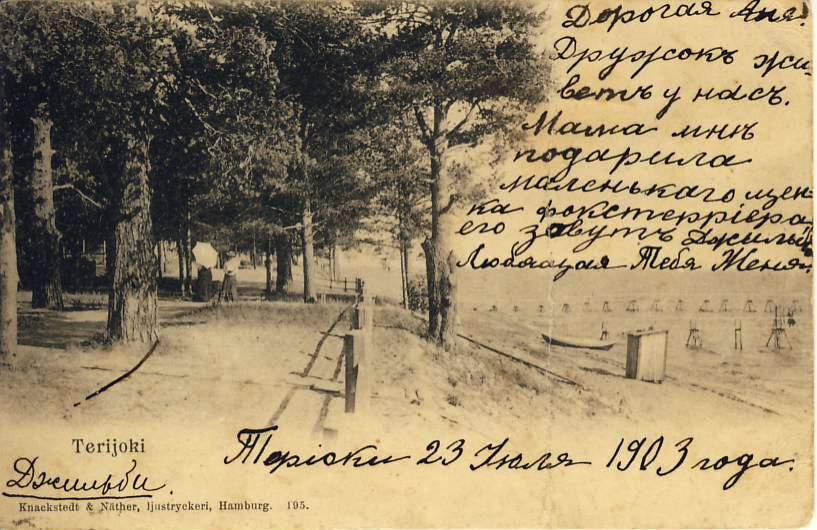 Дорогая Аня!
Дружокъ жи-
ветъ у насъ.
Мама мнѣ
подарила
маленькаго щен-
ка фокстерріера,
его зовутъ Джильби
Любящая Тебя Женя.
Теріоки 23 Іюля 1903 года.
Terijoki
Джильби.
Knackstedt & Näther, ljustryckeri, Hamburg. 195.